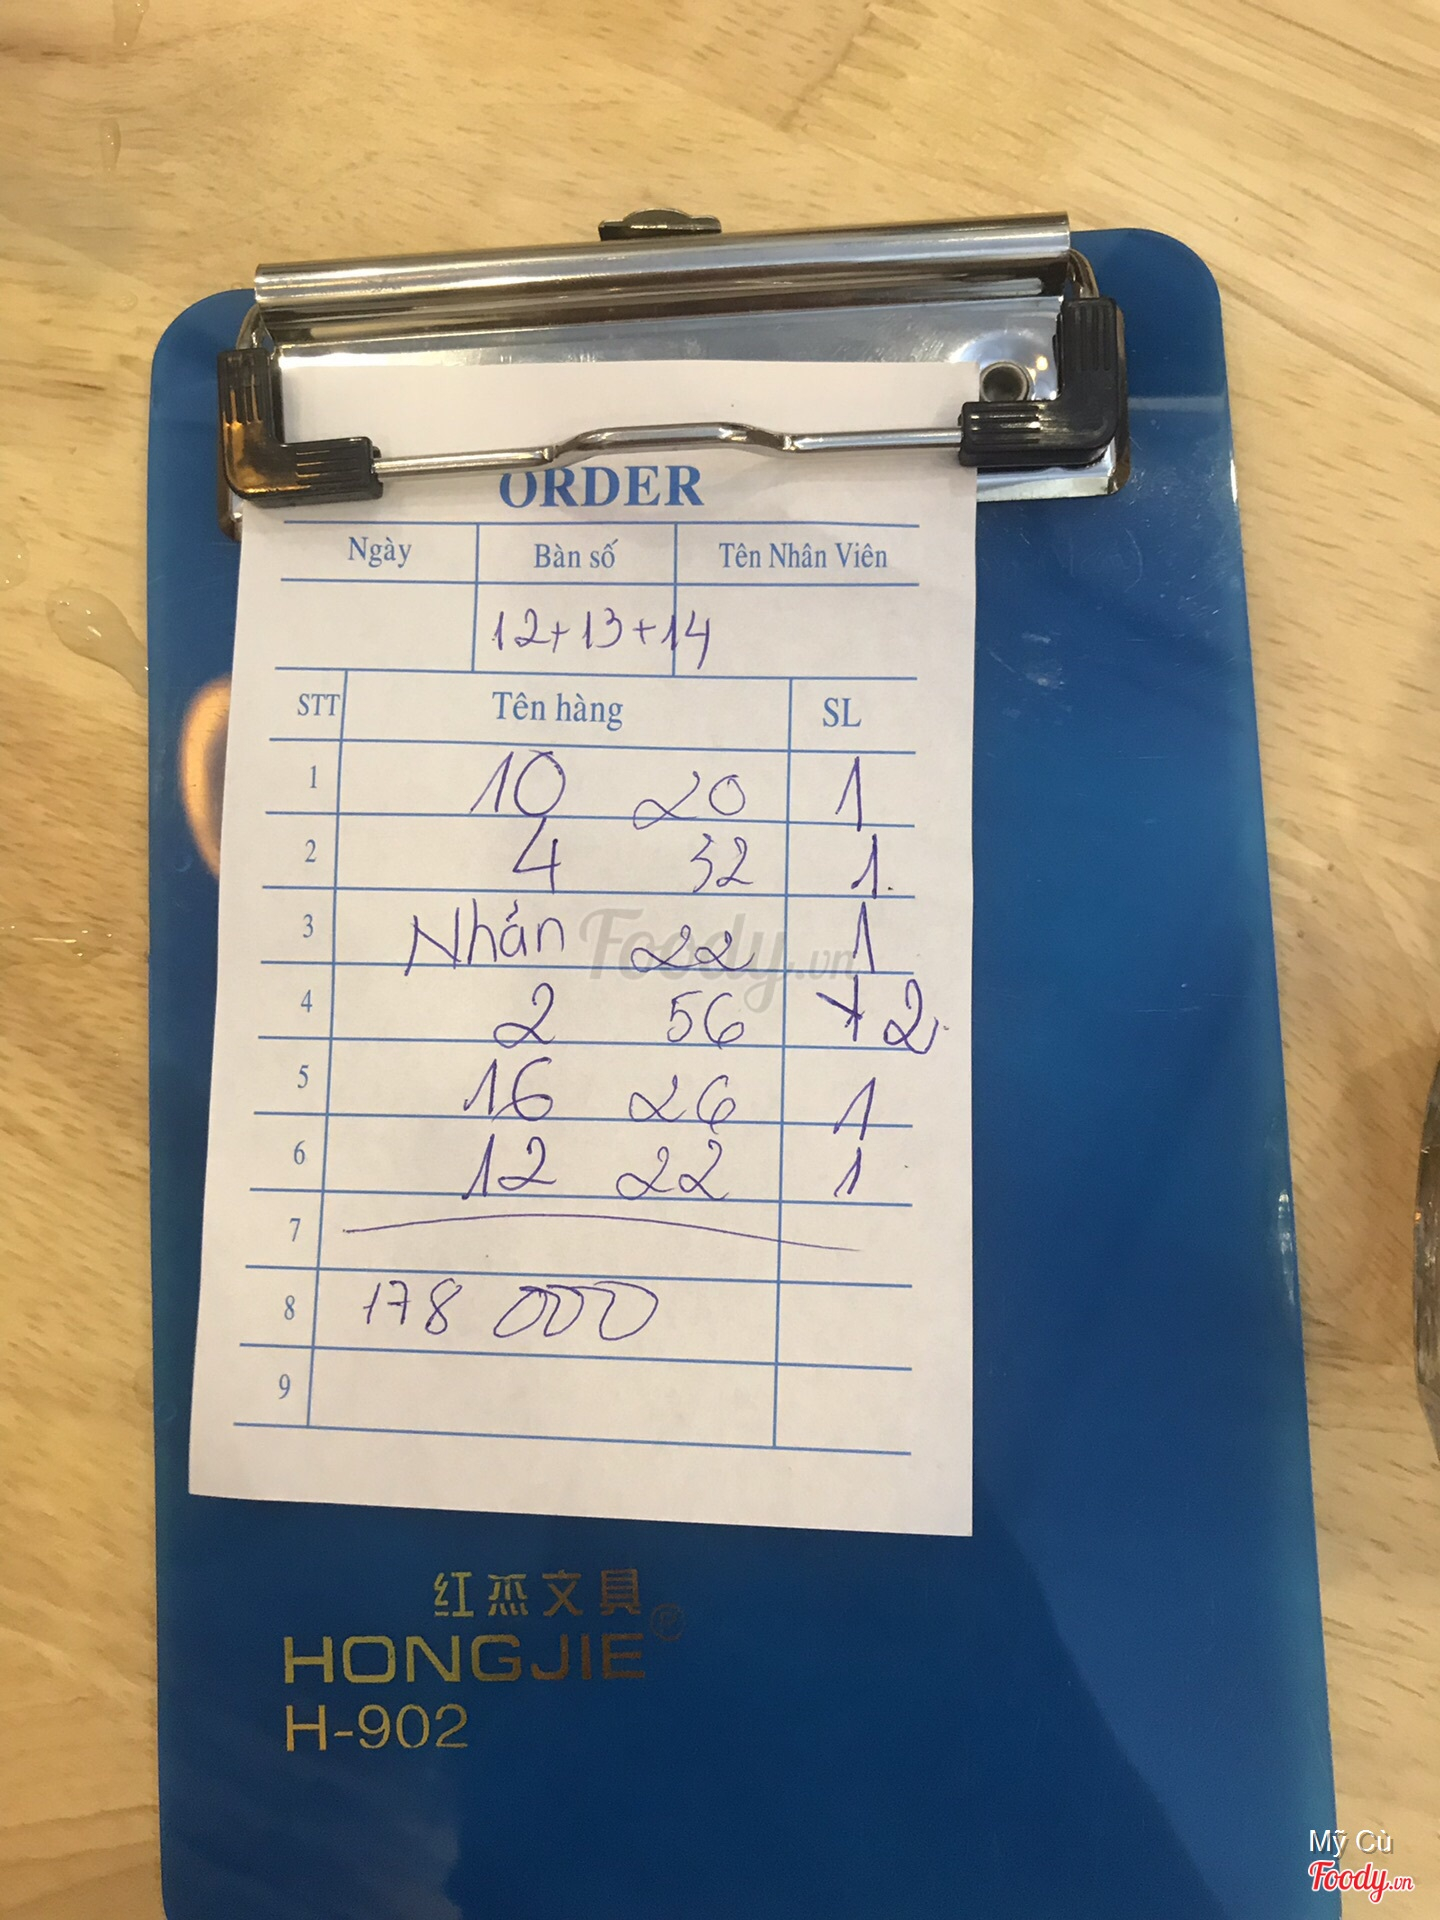 ORDER
Ngày Bàn số Tên Nhân Viên
12+13+14
STT Tên hàng SL
1 10 20 1
2 4 32 1
3 Nhãn 22 1
4 2 56 2
5 16 26 1
6 12 22 1
7
8 178 000
9
Foody.vn
红杰文具
HONGJIE®
H-902
Mỹ Cù
Foody.vn